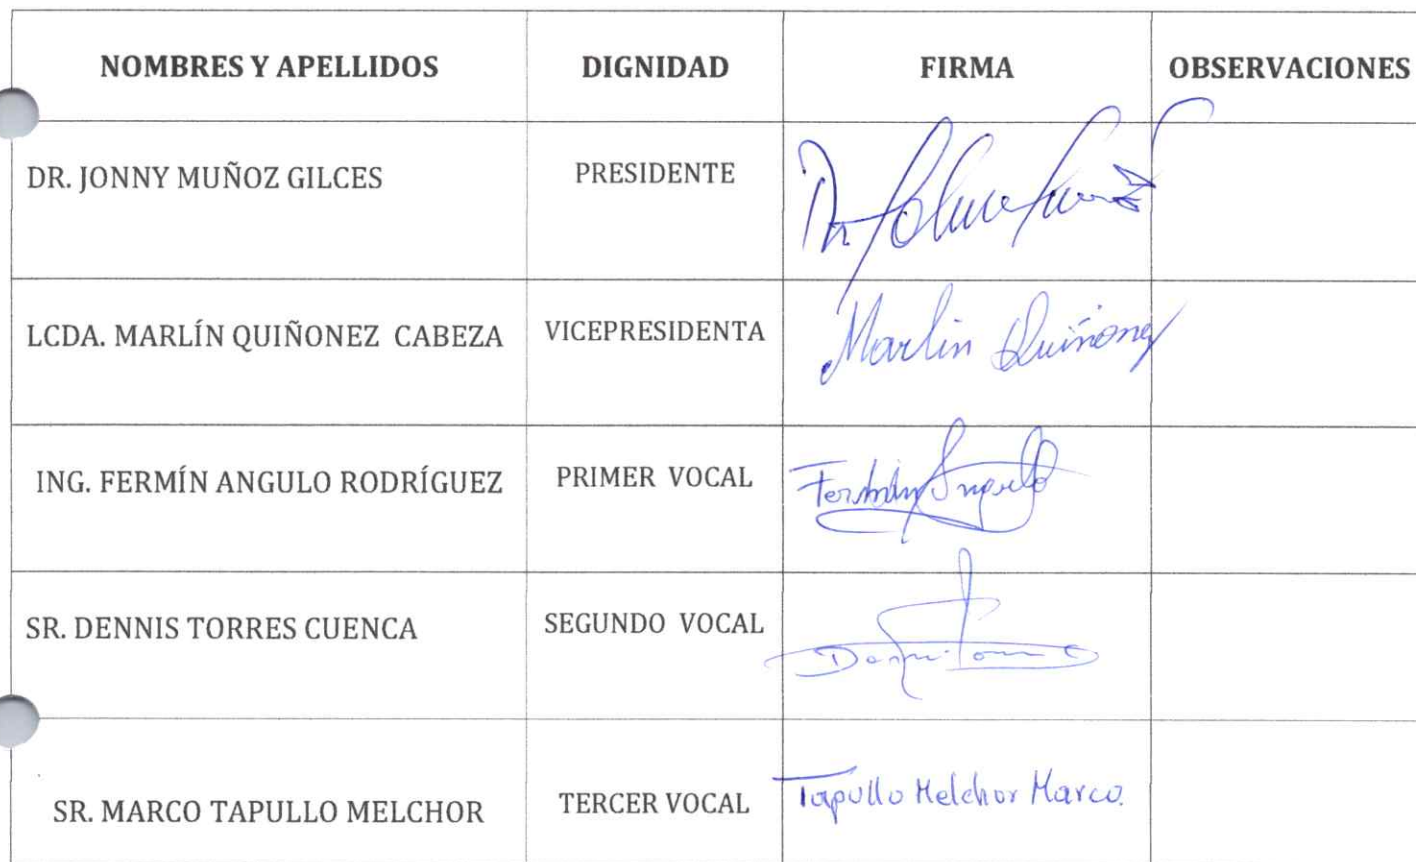 NOMBRES Y APELLIDOS DIGNIDAD FIRMA OBSERVACIONES
DR. JONNY MUÑOZ GILCES PRESIDENTE Dr
LCDA. MARLÍN QUIÑONEZ CABEZA VICEPRESIDENTA Marlin Quiñonez
ING. FERMÍN ANGULO RODRÍGUEZ PRIMER VOCAL Fermín Angulo
SR. DENNIS TORRES CUENCA SEGUNDO VOCAL
SR. MARCO TAPULLO MELCHOR TERCER VOCAL Tapullo Melchor Marco.